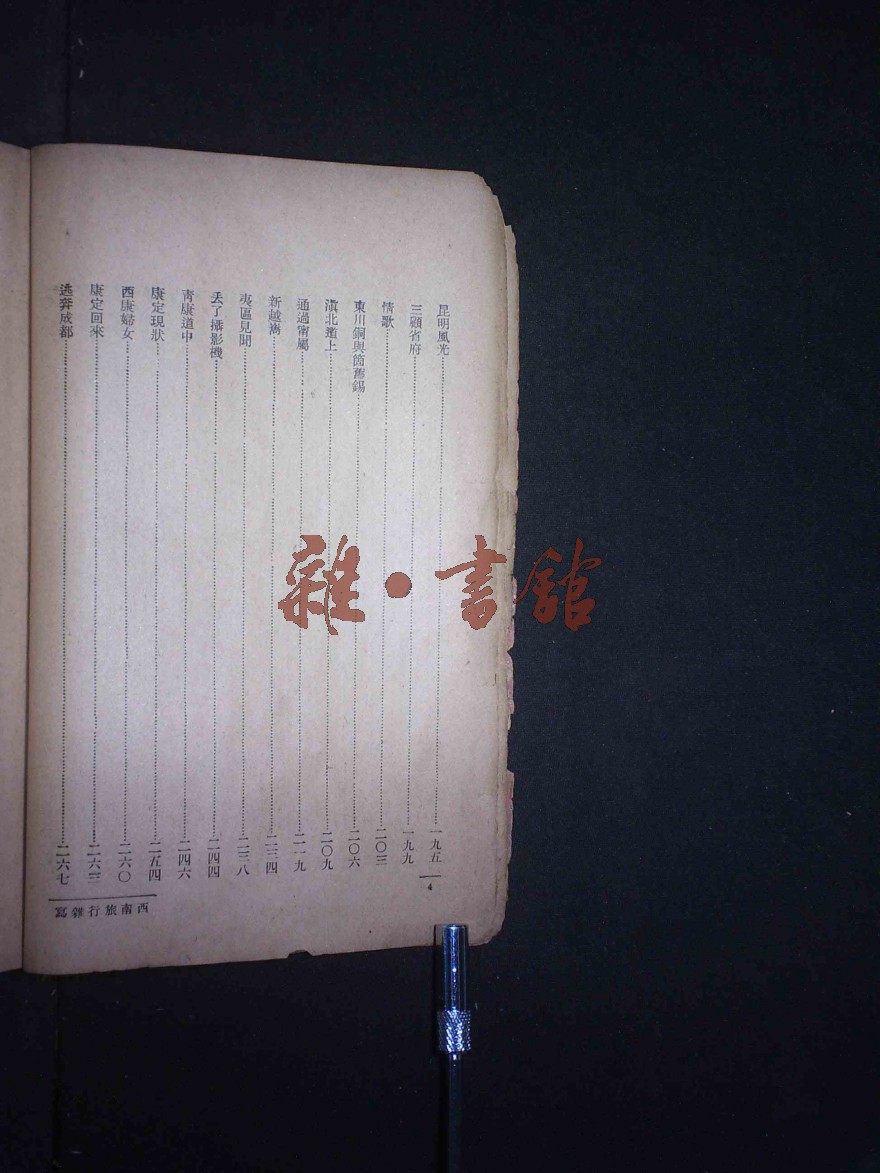 昆明風光……一九五
三顧省府……一九九
情歌……二〇三
東川銅與箇舊錫……二〇六
滇北道上……二〇九
通過甯屬……二一九
新越嶲……二三四
夷區見聞……二三八
丢了攝影機……二四四
青康道中……二四六
康定現狀……二五四
西康婦女……二六〇
康定回來……二六三
逃奔成都……二六七
4
西南旅行雜寫
雜·書館